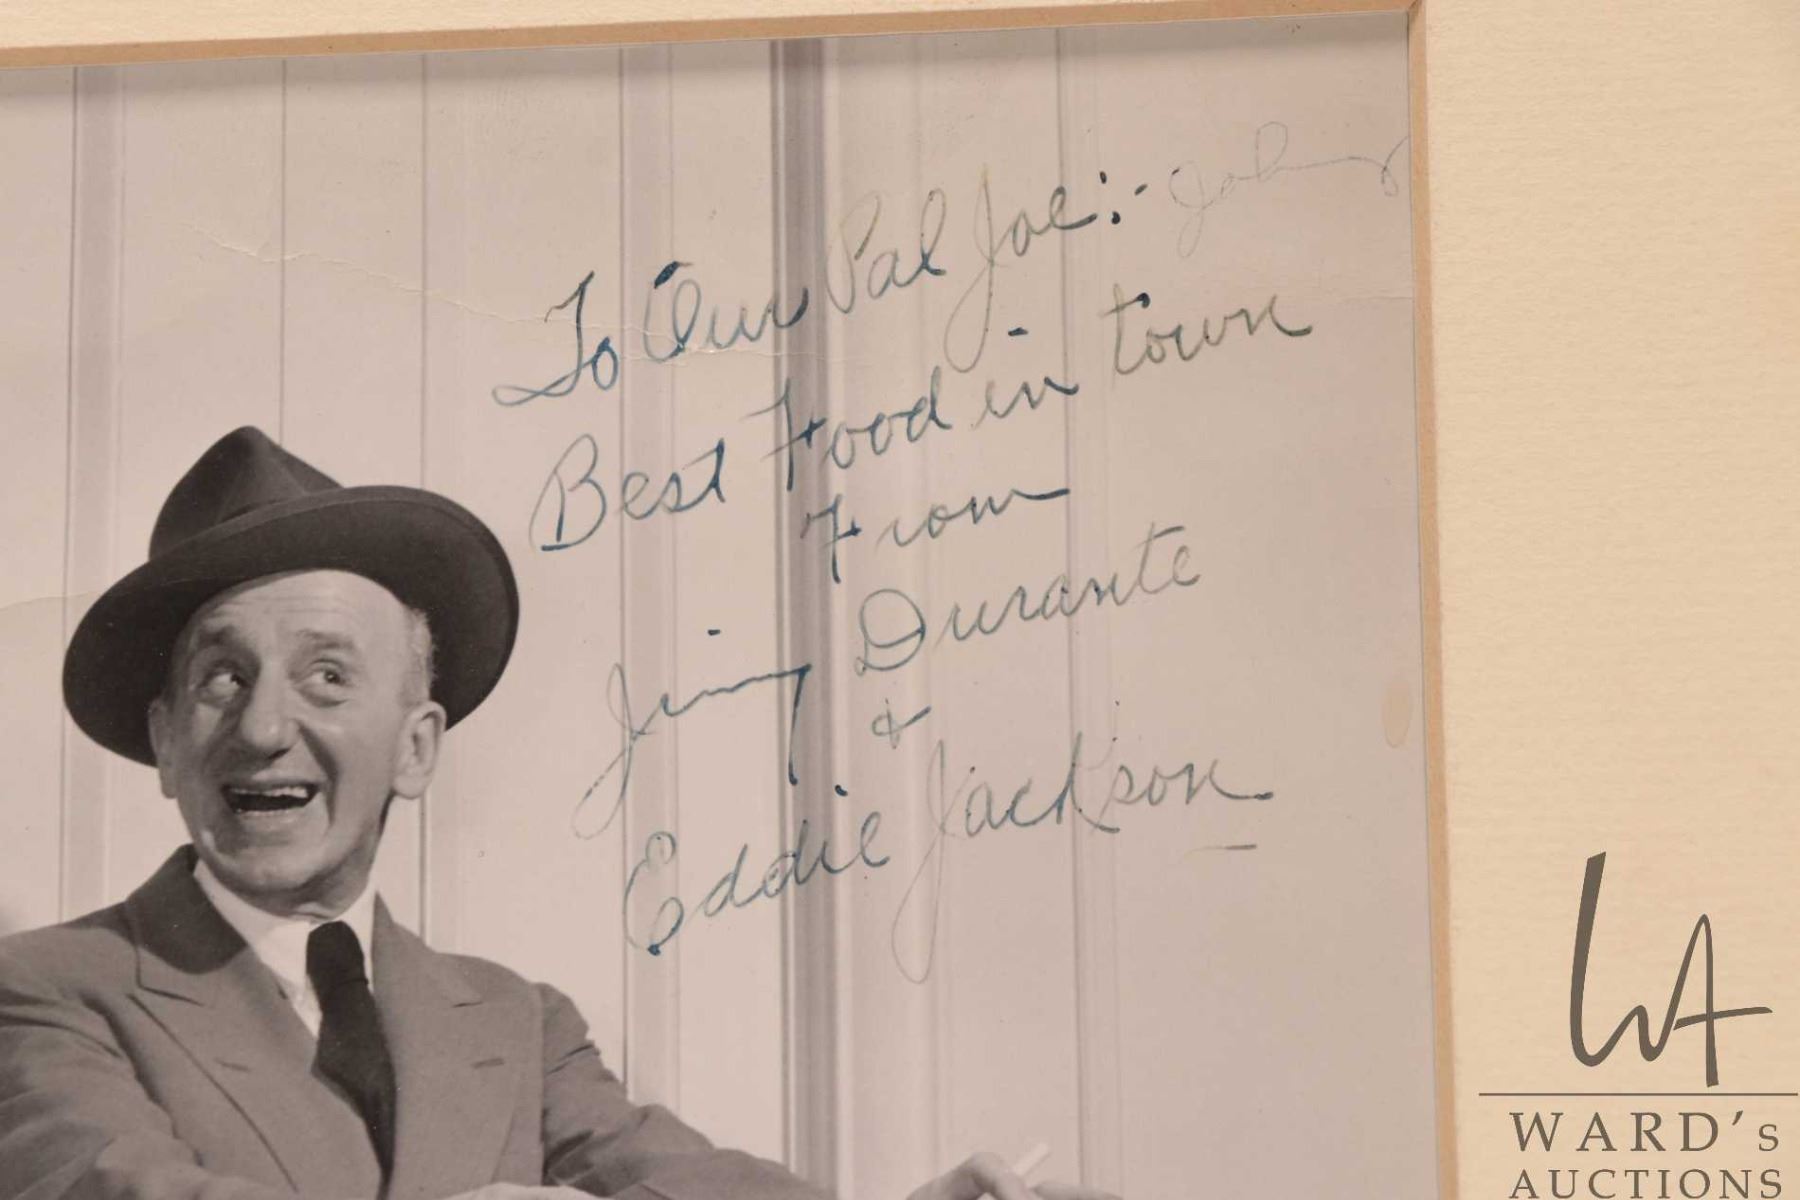 To Our Pal Joe:- Johny
Best Food in town
From
Jimmy Durante
&
Eddie Jackson
WA
WARD's
AUCTIONS